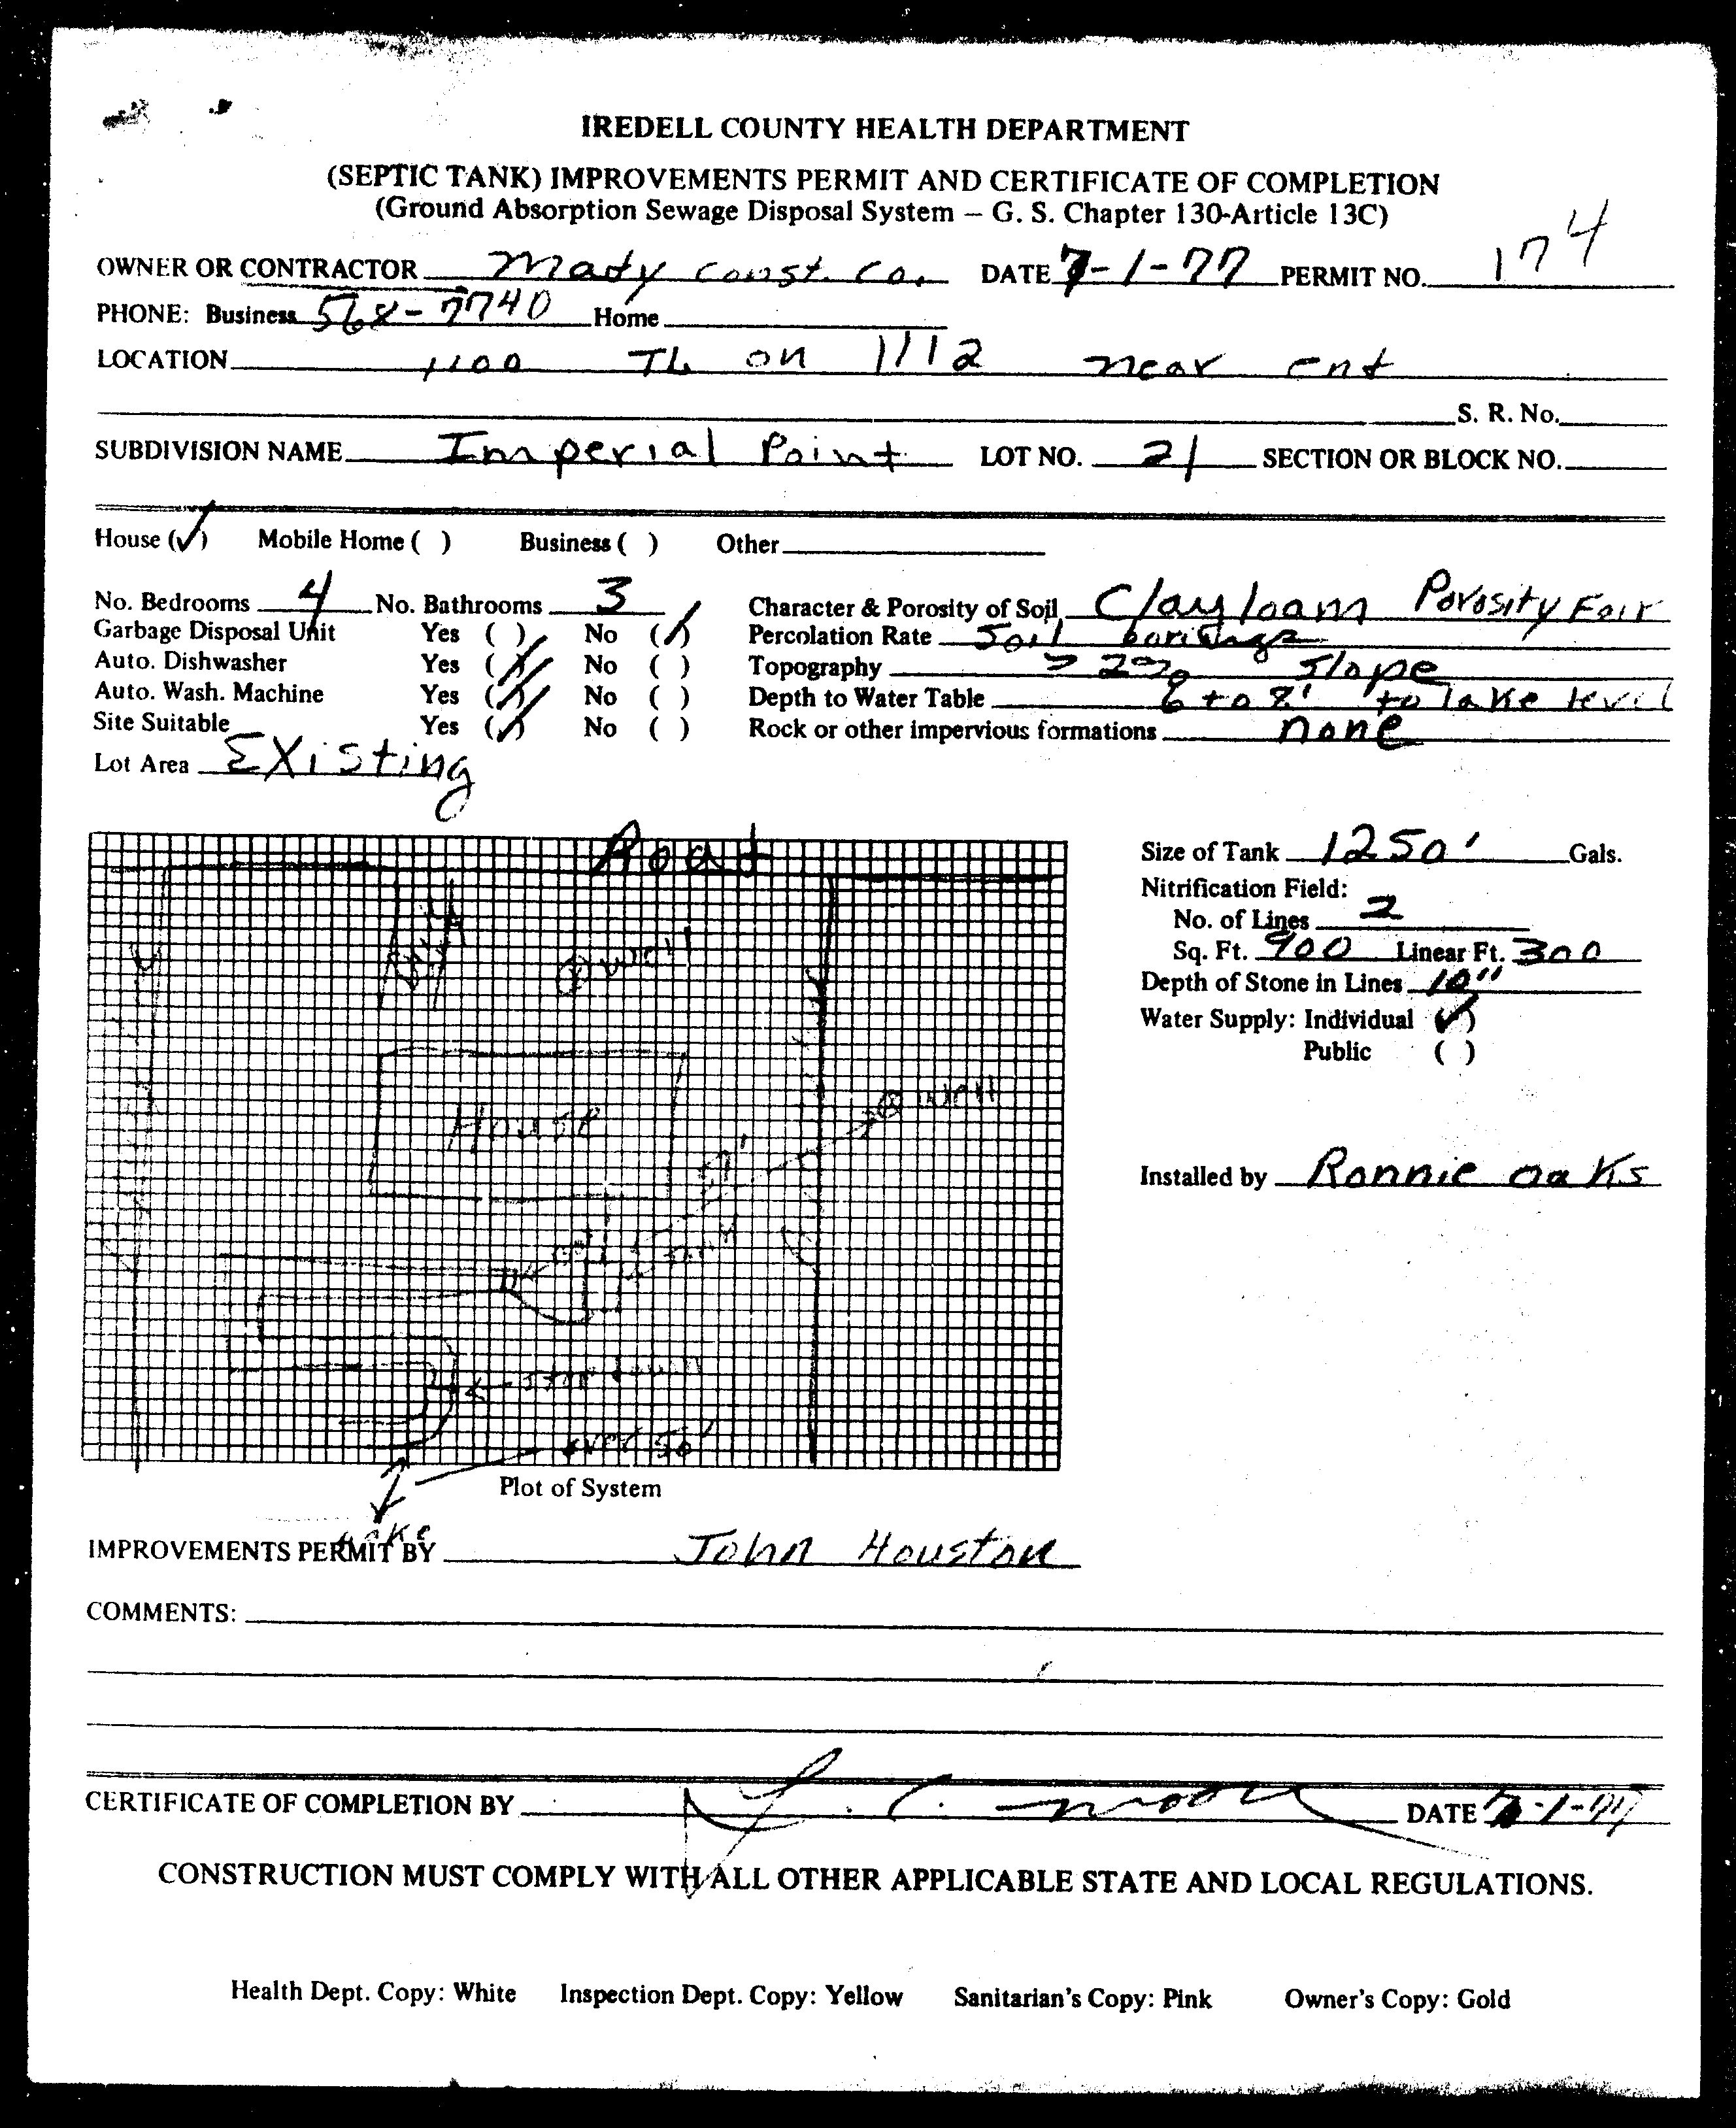 IREDELL COUNTY HEALTH DEPARTMENT
(SEPTIC TANK) IMPROVEMENTS PERMIT AND CERTIFICATE OF COMPLETION
(Ground Absorption Sewage Disposal System – G. S. Chapter 130-Article 13C)
OWNER OR CONTRACTOR Mady Const. Co. DATE 7-1-77 PERMIT NO. 174
PHONE: Business 568-7740 Home
LOCATION 1100 TL on 1112 near ent
S. R. No.
SUBDIVISION NAME Imperial Point LOT NO. 21 SECTION OR BLOCK NO.
House (✓) Mobile Home ( ) Business ( ) Other
No. Bedrooms 4 No. Bathrooms 3 Character & Porosity of Soil Clayloam Porosity Fair
Garbage Disposal Unit Yes ( ) No (✓) Percolation Rate Soil borings
Auto. Dishwasher Yes (✓) No ( ) Topography > 2% slope
Auto. Wash. Machine Yes (✓) No ( ) Depth to Water Table 6 to 8' to lake level
Site Suitable Yes (✓) No ( ) Rock or other impervious formations none
Lot Area Existing
Road
Size of Tank 1250' Gals.
Nitrification Field:
No. of Lines 2
Sq. Ft. 900 Linear Ft. 300
Depth of Stone in Lines 10"
Water Supply: Individual (✓)
Public ( )
well
House
well
Installed by Ronnie Oaks
Tank
step down
over 50'
Plot of System
Lake
IMPROVEMENTS PERMIT BY John Houston
COMMENTS:
CERTIFICATE OF COMPLETION BY DATE 7-1-77
CONSTRUCTION MUST COMPLY WITH ALL OTHER APPLICABLE STATE AND LOCAL REGULATIONS.
Health Dept. Copy: White Inspection Dept. Copy: Yellow Sanitarian's Copy: Pink Owner's Copy: Gold